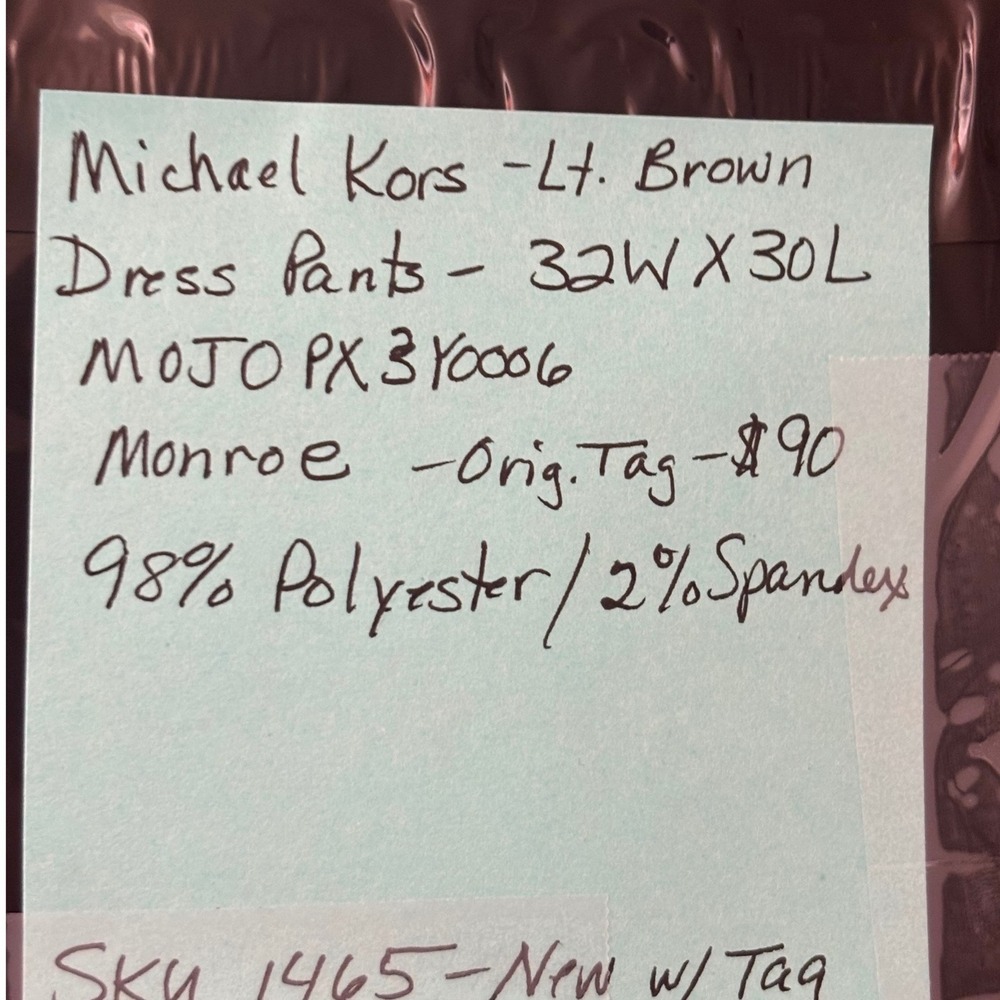 Michael Kors - Lt. Brown
Dress Pants - 32W X 30L
MOJO PX3Y0006
Monroe - Orig. Tag - $90
98% Polyester / 2% Spandex
SKU 1465 - New w/ Tag